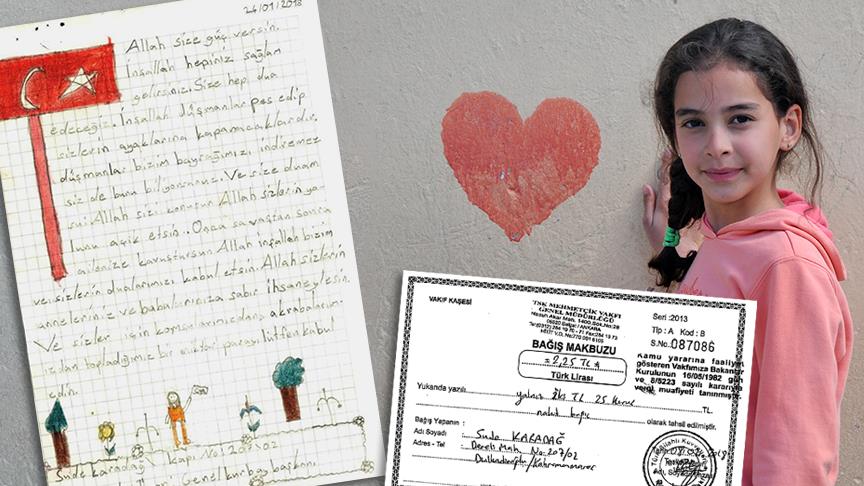 24/01/2018
Allah size güç versin.
İnşallah hepiniz sağlam
gelirsiniz. Size hep dua
edeceğiz. İnşallah düşmanlar pes edip
sizlerin ayaklarına kapanacaklardır.
düşmanlar bizim bayrağımızı indiremez
siz de bunu biliyorsunuz. Ve size duam
şu: Allah sizi korusun Allah sizlerin yo-
lunu açık etsin. Onca savaştan sonra
ailenize kavuştursun Allah inşallah bizim
ve sizlerin dualarımızı kabul etsin. Allah sizlerin
annelerinize ve babalarınıza sabır ihsan eylesin.
Ve sizler için komşularımızdan akrabaları-
mızdan topladığımız bir miktar parayı lütfen kabul
edin.
Sude Karadağ Kapı No: 207/02
Genel kurbay başkanı
VAKIF KAŞESİ
TSK MEHMETÇİK VAKFI
GENEL MÜDÜRLÜĞÜ
Nasuh Akar Mah. 1400.Sok.No:28
06520 Balgat / ANKARA
BAĞIŞ MAKBUZU
=2,25 TL=
Türk Lirası
Seri :2013
Tip : A Kod : B
S.No: 087086
Kamu yararına faaliyet
gösteren Vakfımıza Bakanlar
Kurulunun 16/05/1982 gün
ve 8/5223 sayılı kararıyla
vergi muafiyeti tanınmıştır.
Yukarıda yazılı yalnız iki TL 25 Kuruş TL.
nakit bağış olarak tahsil edilmiştir.
Bağış Yapanın :
Adı Soyadı : Sude KARADAĞ
Adres - Tel : Dereli Mah. No:207/02
Dulkadiroğlu/Kahramanmaraş